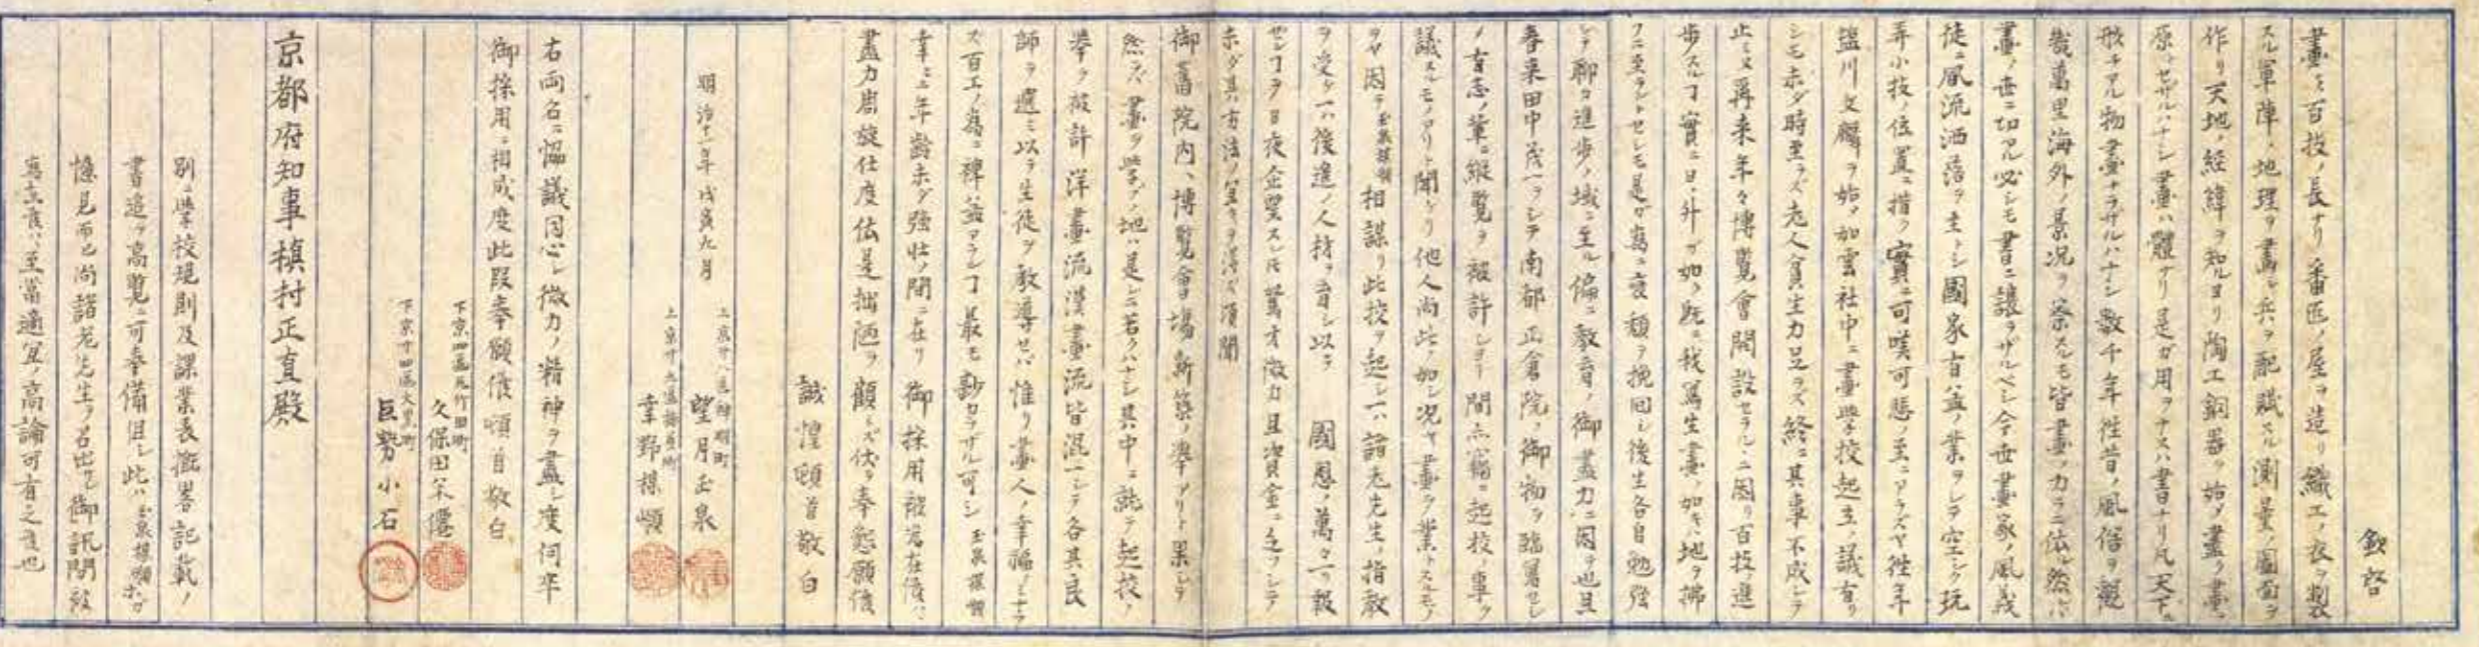 敬啓
畫ハ百技ノ長ナリ番匠ノ屋ヲ造リ織工ノ衣ヲ製
スル軍陣ノ地理ヲ畫シ兵ヲ配賦スル測量ノ圖面ヲ
作リ天地ノ経緯ヲ知ルヨリ陶工銅器ヲ始メ盡ク畫ニ
原セザルハナシ畫ハ體ナリ是ガ用ヲナスハ書ナリ凡天下
形チアル物畫ナラザルハナシ數千年往昔ノ風俗ヲ想
幾萬里海外ノ景况ヲ察スルモ皆畫ノカラニ依ル然ハ
畫ノ世ニ切アル必シモ書ニ譲ラザルベシ今世畫家ノ風義
徒ニ風流洒落ヲ主トシ國家有益ノ業ヲシテ空シク玩
弄小技ノ位置ニ措ク實ニ可嘆可悲ノ至ニアラズヤ往年
塩川文麟ヲ始メ如雲社中ニ畫學校起立ノ議有リ
シモ未ダ時至ラズ老人貧生力足ラズ終ニ其事不成シテ
止ミヌ再来年々博覧會開設セラルヽニ因リ百技ノ進
歩スルヿ實ニ日ニ升ガ如ク既ニ我寫生畫ノ如キハ地ヲ拂
フニ至ラントセシモ是ガ為ニ衰頽ヲ挽回シ後生各自勉強
シテ聊カ進歩ノ域ニ至ル偏ニ教育ノ御盡力ニ因ル也且
春来田中茂一ヲシテ南都正倉院ノ御物ヲ臨寫セシメ
有志ノ輩ニ縦覧ヲ被許シヨリ間ニ窃ニ起校ノ事ヲ
議スルモノアリト聞ケリ他人尚此ノ如シ况ヤ畫ヲ業トスルモノ
ヲヤ因テ玉泉楳嶺相謀リ此校ヲ起シ一ハ諸老先生ノ指教
ヲ受ケ一ハ後進ノ人材ヲ育シ以テ國恩ノ萬々一ヲ報
センヿヲ日夜企望スレ𪜈駑才微力且資金ニ乏フシテ
未ダ其方法ノ宜キヲ得ズ頃聞
御舊院内ヘ博覧會場新築ノ擧アリト果シテ
然ラバ畫ヲ學ブノ地ハ是ニ若クハナシ其中ニ就テ起校ノ
擧ヲ被許洋畫流漢畫流皆混一シテ各其良
師ヲ選ミ以テ生徒ヲ教導セバ惟リ畫人ノ幸福ノミナラ
ズ百工ノ為ニ裨益アランヿ最モ尠カラザル可シ玉泉楳嶺
幸ニ年齢未ダ強壮ノ間ニ在リ御採用被為在候ハヽ
盡力周旋仕度依是拙陋ヲ顧ミズ伏テ奉懇願候
誠惶頓首敬白
明治十一年戊寅九月
望月玉泉
幸野楳嶺
右両名ニ協議同心シ微力ノ精神ヲ盡シ度何卒
御採用ニ相成度此段奉願候頓首敬白
久保田米僊
巨勢小石
京都府知事槇村正直殿
別ニ學校規則及課業表概畧記載ノ
書追テ高覧ニ可奉備但シ此ハ玉泉楳嶺ホガ
憶見而已尚諸老先生ヲ召出サレ御訊問被
為在候ハヽ至當適宜ノ高論可有之候也